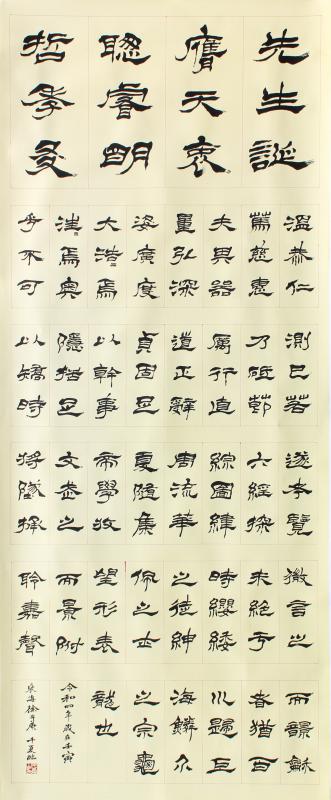 先生誕
膺天衷
聰睿明
哲孝友
溫恭仁
篤慈惠
夫其器
量弘深
姿廣度
大浩〻焉
汪〻焉奧
乎不可
測已若
乃砥節
厲行直
道正辭
貞固足
以幹事
隱括足
以矯時
遂考覽
六經探
綜圖緯
周流華
夏隨集
帝學收
文武之
將墜拯
微言之
未絕于
時纓緌
之徒紳
佩之士
望形表
而景附
聆嘉聲
而韻龢
者猶百
川歸巨
海鱗介
之宗龜
龍也
令和四年歳在壬寅